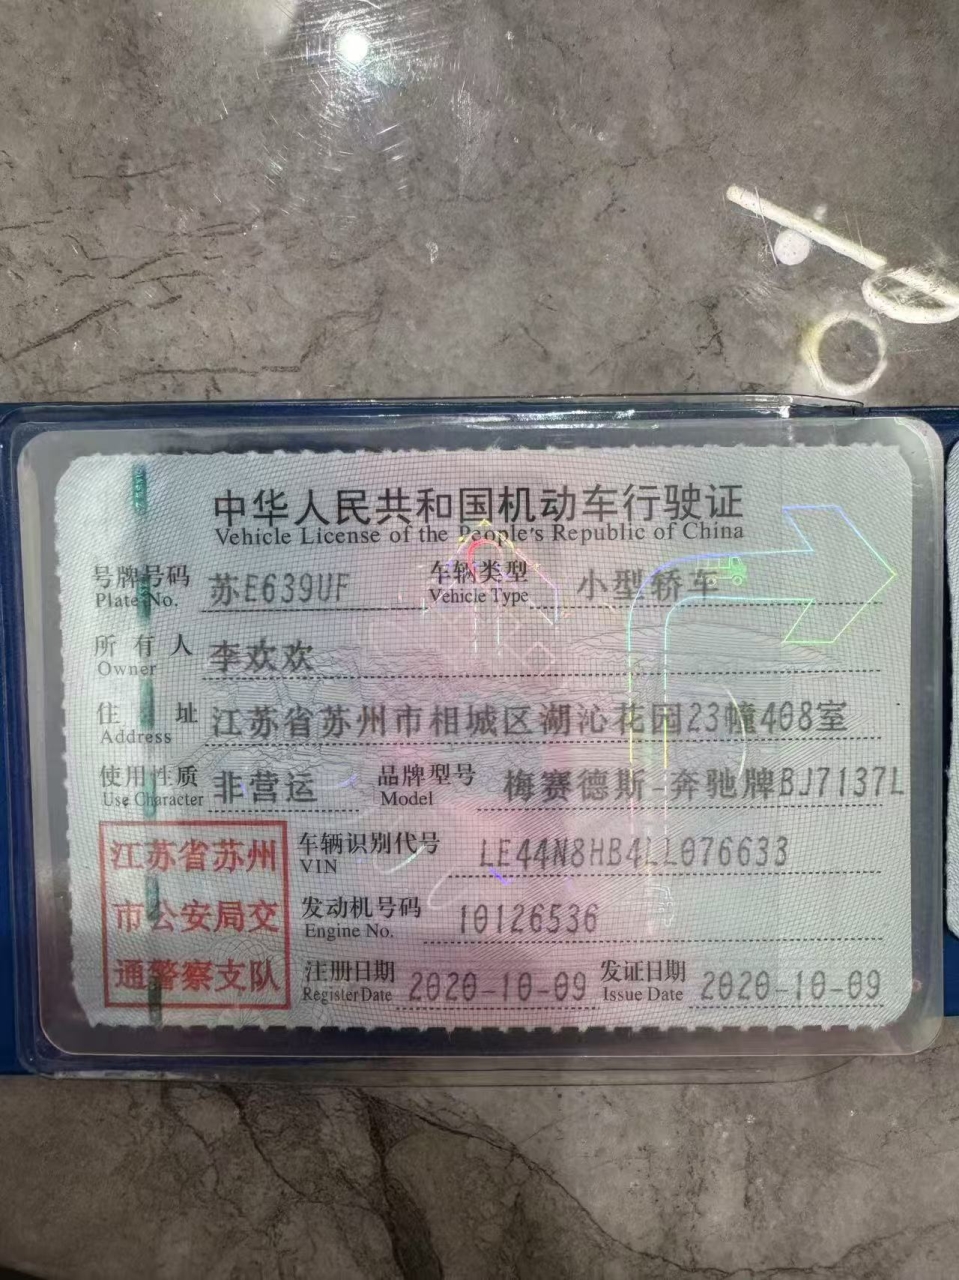 中华人民共和国机动车行驶证
Vehicle License of the People's Republic of China
号牌号码 苏E639UF 车辆类型 小型轿车
Plate No. Vehicle Type
所有人 李欢欢
Owner
住址 江苏省苏州市相城区湖沁花园23幢408室
Address
使用性质 非营运 品牌型号 梅赛德斯-奔驰牌BJ7137L
Use Character Model
江苏省苏州
市公安局交
通警察支队
车辆识别代号 LE44N8HB4LL076633
VIN
发动机号码 10126536
Engine No.
注册日期 2020-10-09 发证日期 2020-10-09
Register Date Issue Date